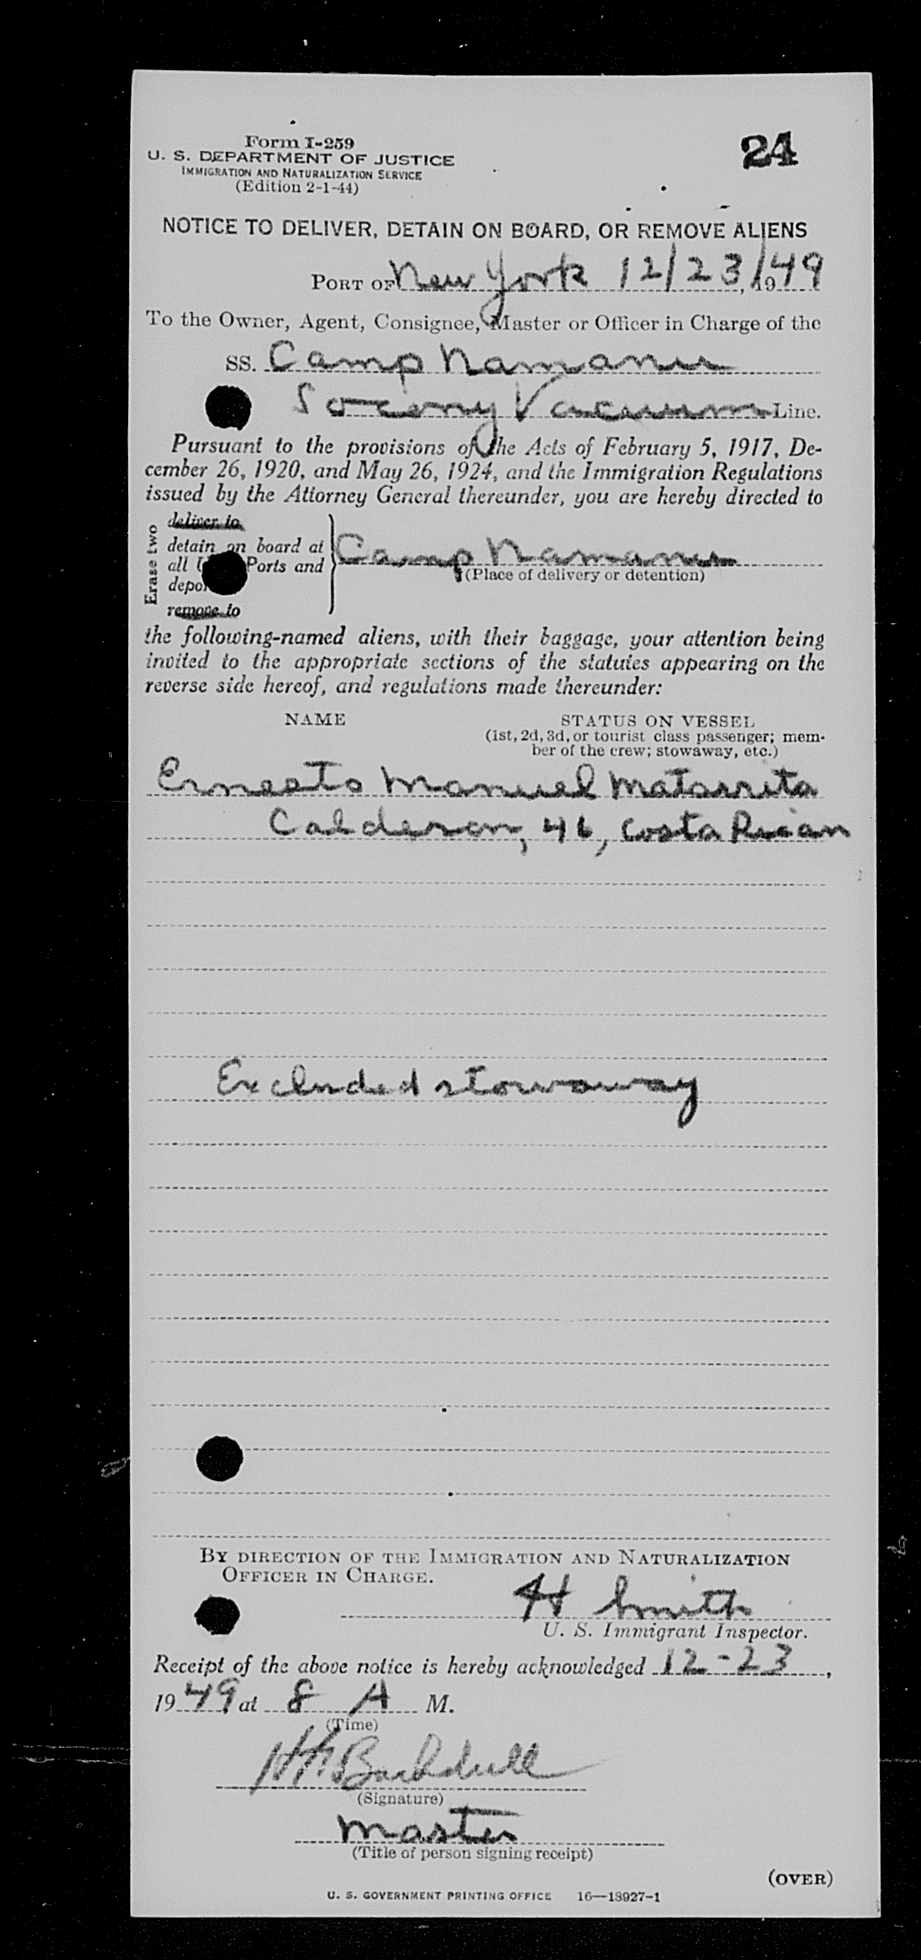 Form I-259
24
U. S. DEPARTMENT OF JUSTICE
IMMIGRATION AND NATURALIZATION SERVICE
(Edition 2-1-44)
NOTICE TO DELIVER, DETAIN ON BOARD, OR REMOVE ALIENS
PORT OF New York 12/23/, 1949
To the Owner, Agent, Consignee, Master or Officer in Charge of the
SS. Camp Namanu
Socony Vacuum Line.
Pursuant to the provisions of the Acts of February 5, 1917, De-
cember 26, 1920, and May 26, 1924, and the Immigration Regulations
issued by the Attorney General thereunder, you are hereby directed to
Erase two
deliver to
detain on board at
all Ports and
remove to
Camp Namanu
(Place of delivery or detention)
the following-named aliens, with their baggage, your attention being
invited to the appropriate sections of the statutes appearing on the
reverse side hereof, and regulations made thereunder:
NAME STATUS ON VESSEL
(1st, 2d, 3d, or tourist class passenger; mem-
ber of the crew; stowaway, etc.)
Ernesto Manuel Matarrita
Calderon, 46, Costa Rican
Excluded stowaway
BY DIRECTION OF THE IMMIGRATION AND NATURALIZATION
OFFICER IN CHARGE.
H Smith
U. S. Immigrant Inspector.
Receipt of the above notice is hereby acknowledged 12-23,
1949 at 8 A M.
(Time)
(Signature)
Master
(Title of person signing receipt)
(OVER)
U. S. GOVERNMENT PRINTING OFFICE 16—18927-1